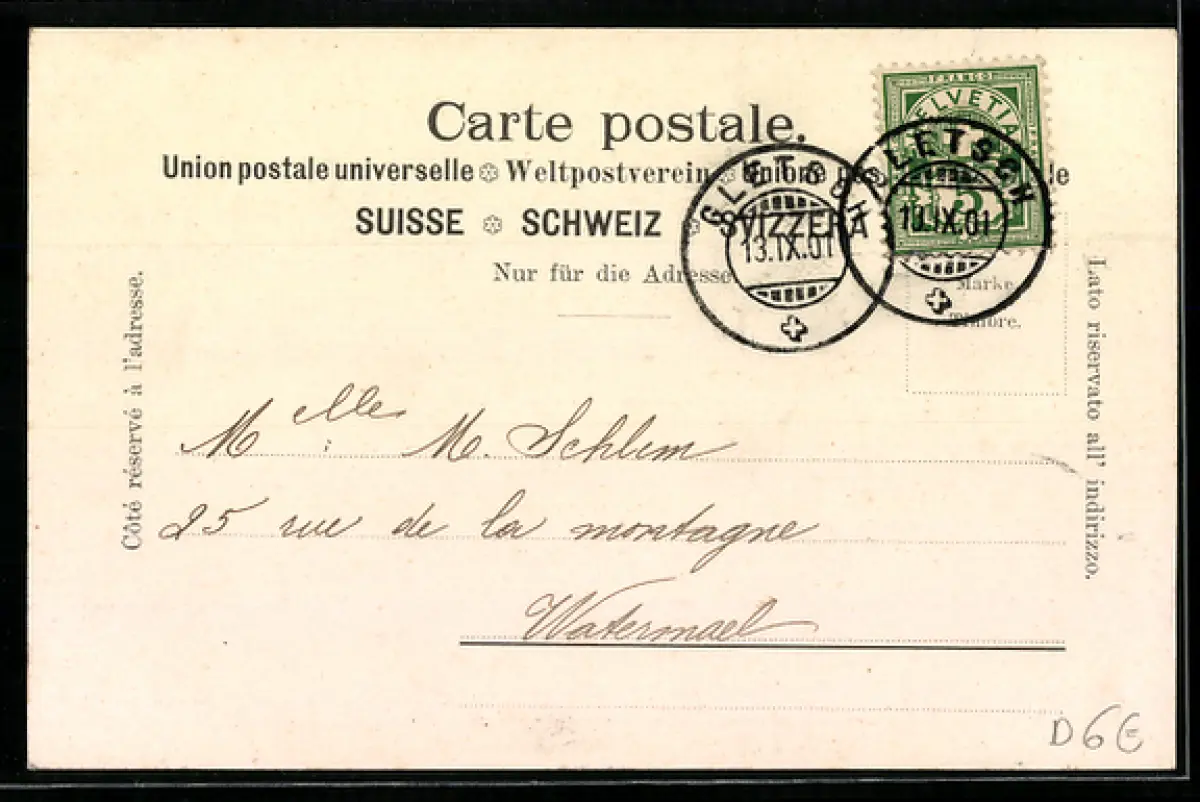 Carte postale.
FRANCO
HELVETIA
Union postale universelle Weltpostverein Unione
SUISSE SCHWEIZ SVIZZERA
GLETSCH
13.IX.01
GLETSCH
13.IX.01
5
Nur für die Adresse
Marke
Timbre.
Côté réservé à l'adresse.
Lato riservato all' indirizzo.
Melle M. Schlim
25 rue de la montagne
Watermael
D 6€